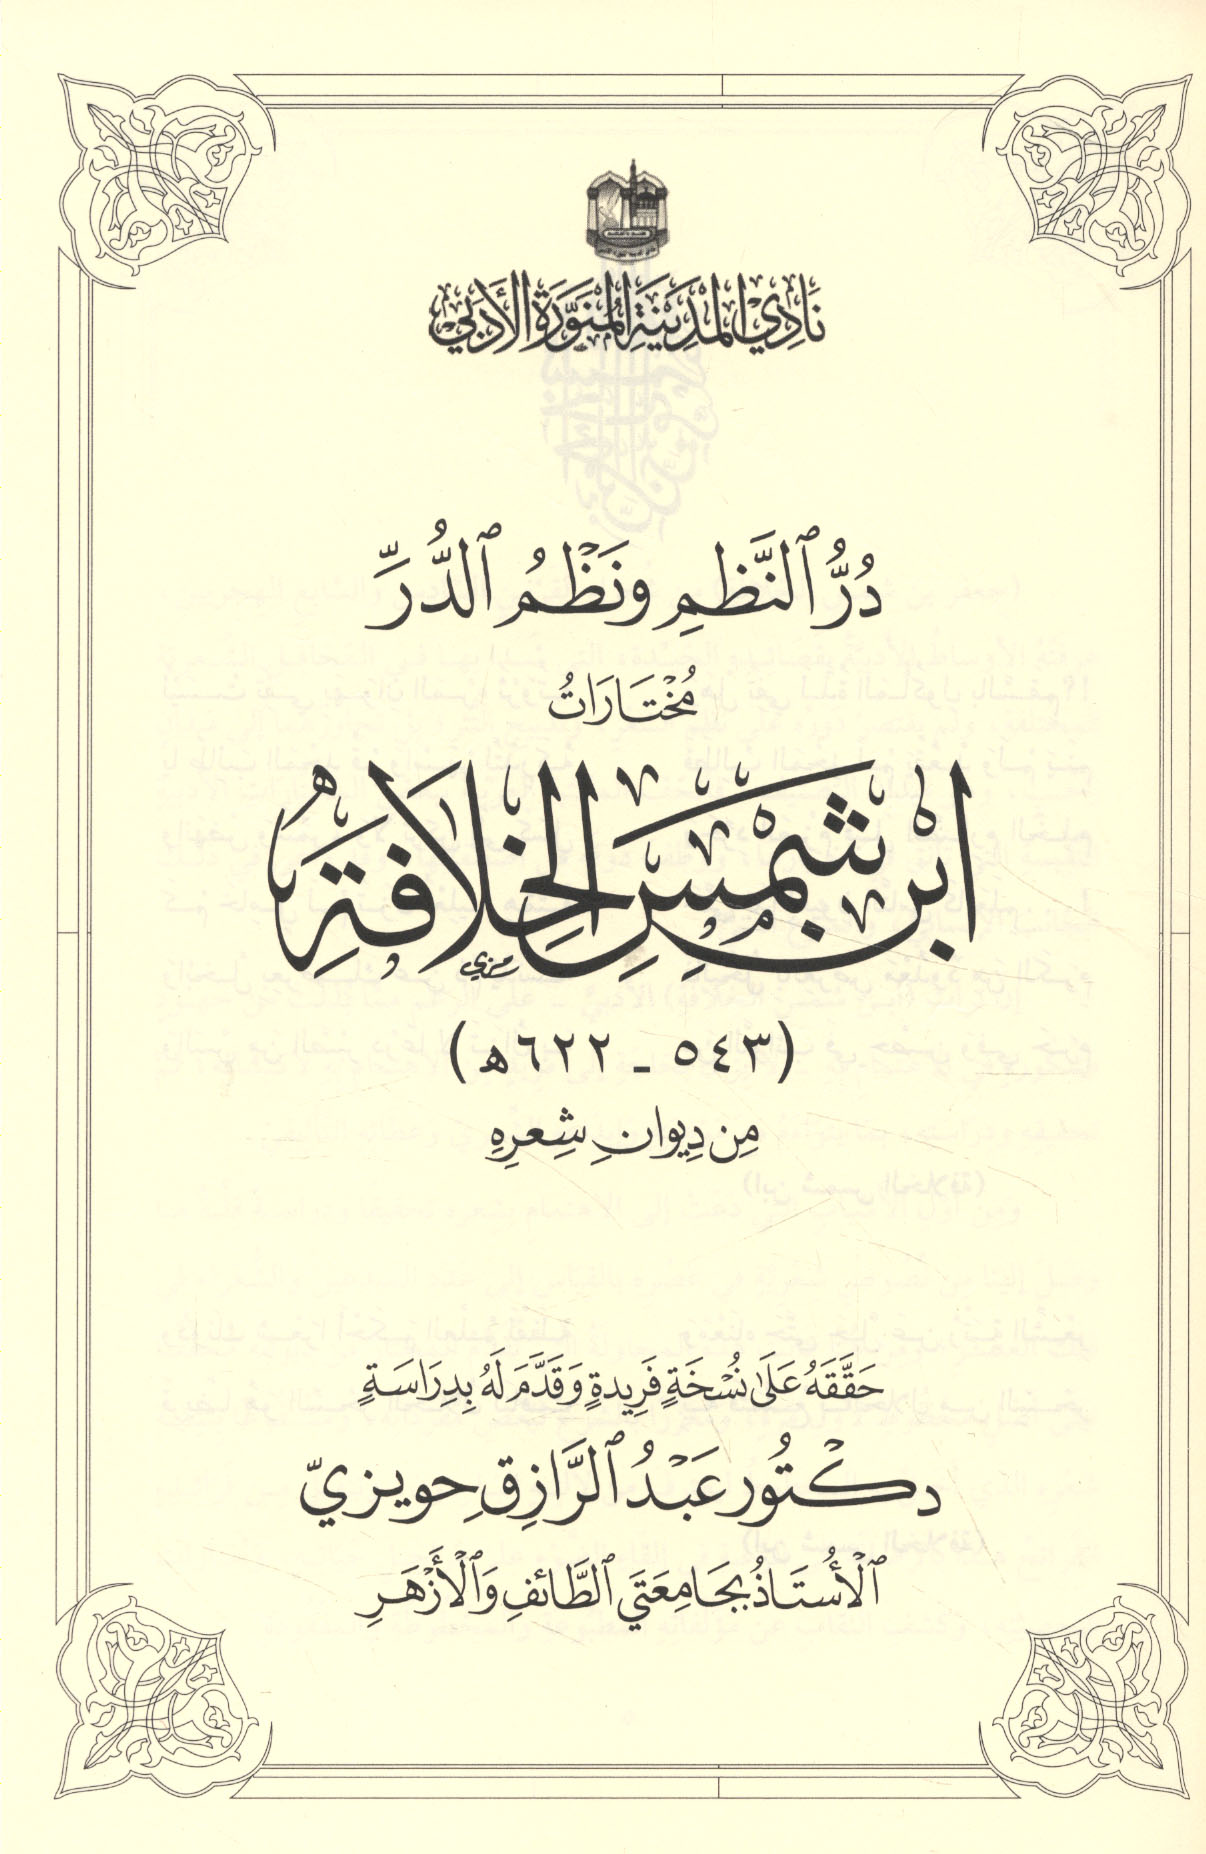 نَادِي المَدِينَةِ المُنَوَّرَةِ الأَدَبِيّ
دُرُّ ٱلنَّظمِ ونَظْمُ ٱلدُّرِّ
مُخْتَارَاتُ
ابْنِ شَمْسِ الخِلَافَةِ
(٥٤٣ - ٦٢٢ه)
مِن دِيوانِ شِعرِهِ
حَقَّقَهُ عَلَى نُسْخَةٍ فَرِيدةٍ وَقَدَّمَ لَهُ بِدِرَاسَةٍ
دكْتُور عَبْدُ ٱلرَّازِقِ حويزيّ
ٱلْأُستَاذُ بجَامِعَتَي ٱلطَّائفِ وَٱلْأَزْهَرِ